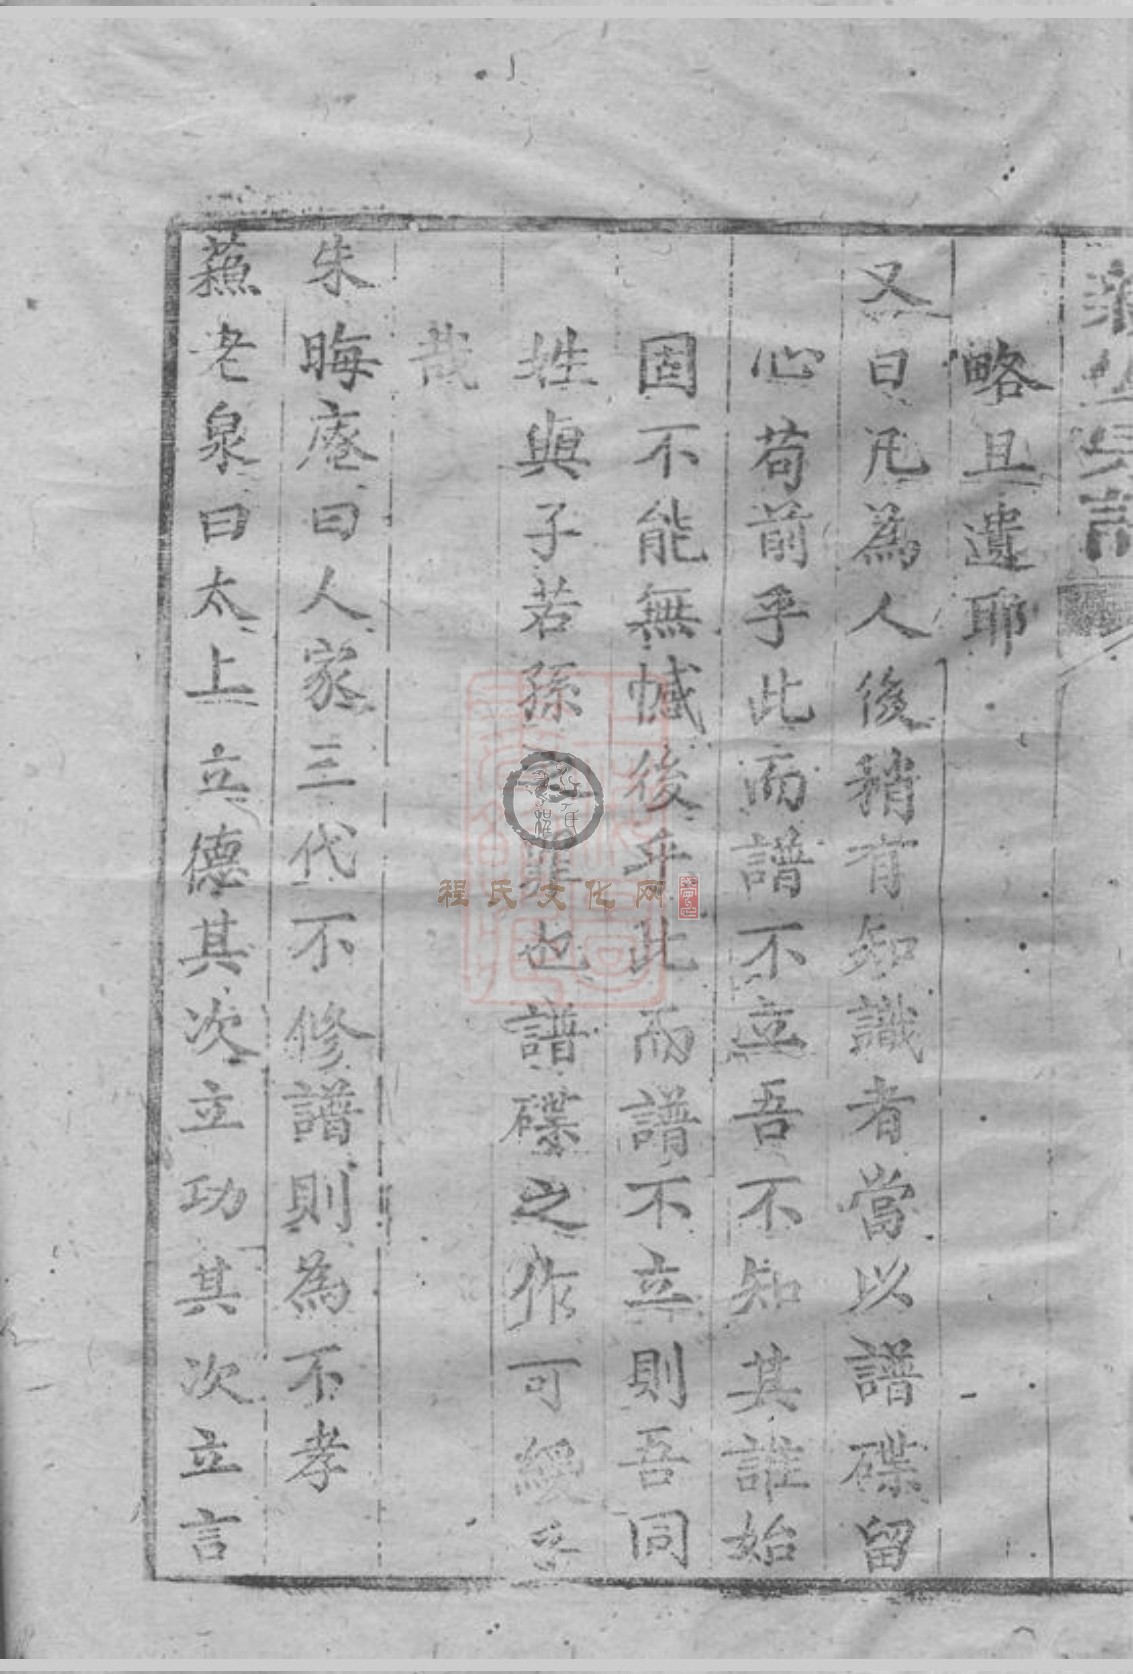 略且遺耶
又曰凡為人後稍有知識者當以譜碟留
心苟前乎此而譜不立吾不知其誰始
固不能無憾後乎此而譜不立則吾同
姓與子若孫之罪也譜碟之作可緩乎
哉
朱晦庵曰人家三代不修譜則為不孝
蘓老泉曰太上立德其次立功其次立言
程氏文化网